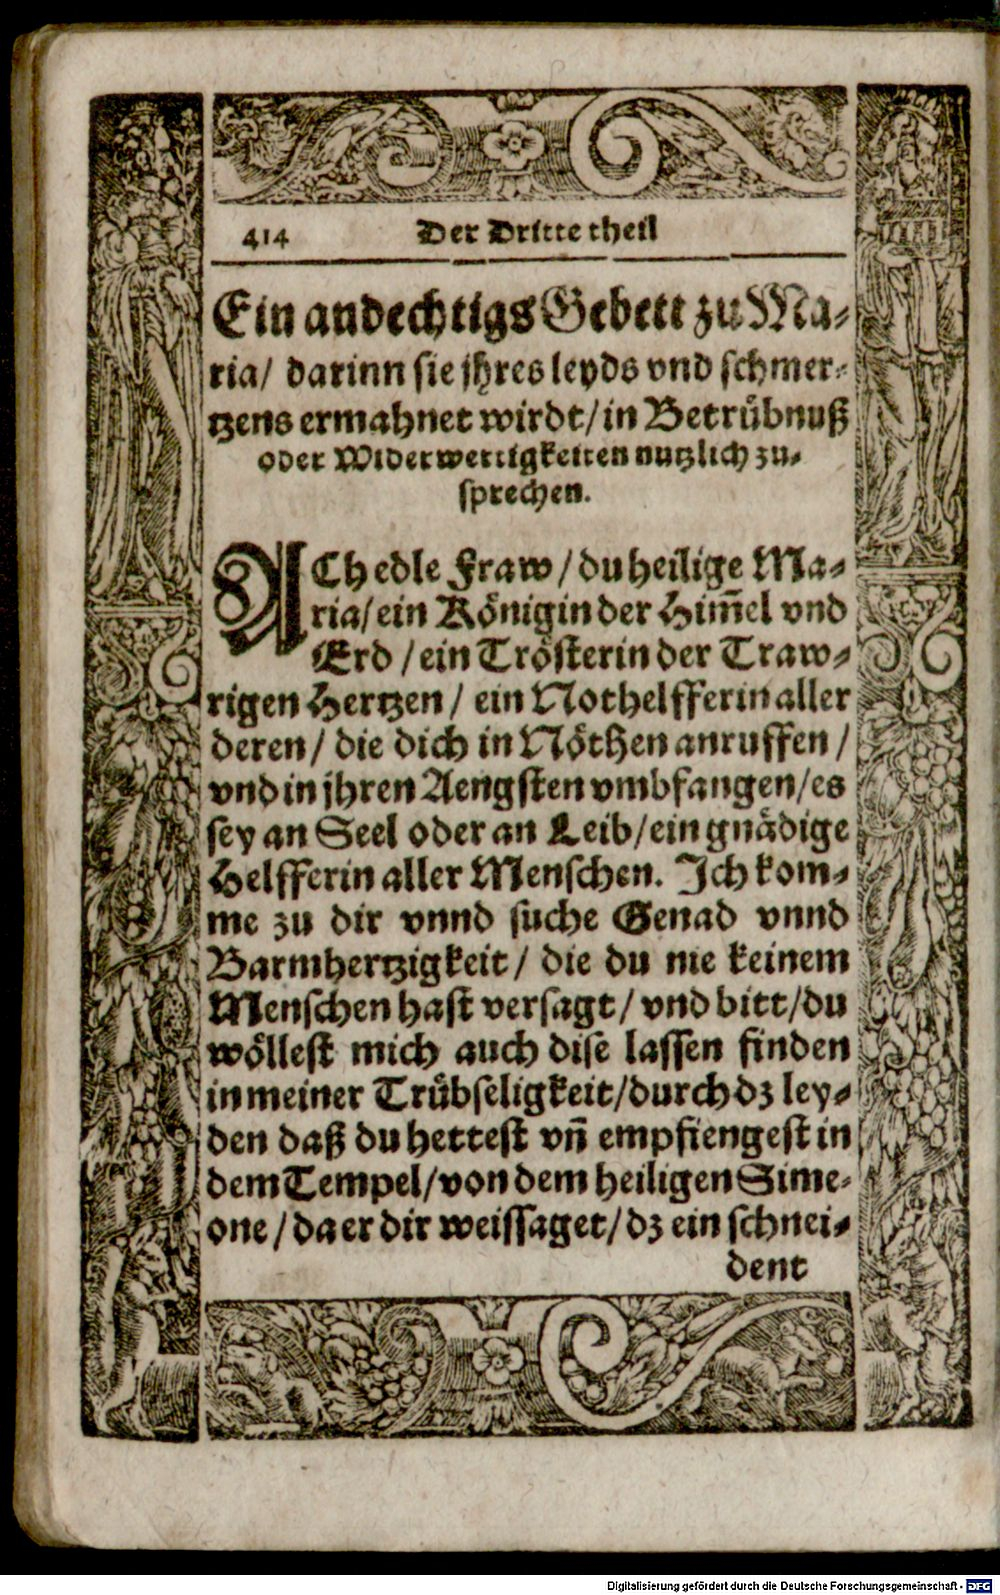 414 Der Dritte theil
Ein andechtigs Gebett zu Ma-
ria/ darinn sie jhres leyds vnd schmer-
tzens ermahnet wirdt/ in Betrübnuß
oder Widerwertigkeiten nutzlich zu-
sprechen.
ACh edle Fraw / du heilige Ma-
ria/ ein Königin der Him̃el vnd
Erd / ein Trösterin der Traw-
rigen Hertzen / ein Nothelfferin aller
deren / die dich in Nöthen anruffen /
vnd in jhren Aengsten vmbfangen/ es
sey an Seel oder an Leib/ ein gnädige
Helfferin aller Menschen. Jch kom-
me zu dir vnnd suche Genad vnnd
Barmhertzigkeit / die du nie keinem
Menschen hast versagt / vnd bitt/ du
wöllest mich auch dise lassen finden
in meiner Trübseligkeit/ durch dz ley-
den daß du hettest vñ empfiengest in
dem Tempel/ von dem heiligen Sime-
one / da er dir weissaget/ dz ein schnei-
dent
Digitalisierung gefördert durch die Deutsche Forschungsgemeinschaft - DFG